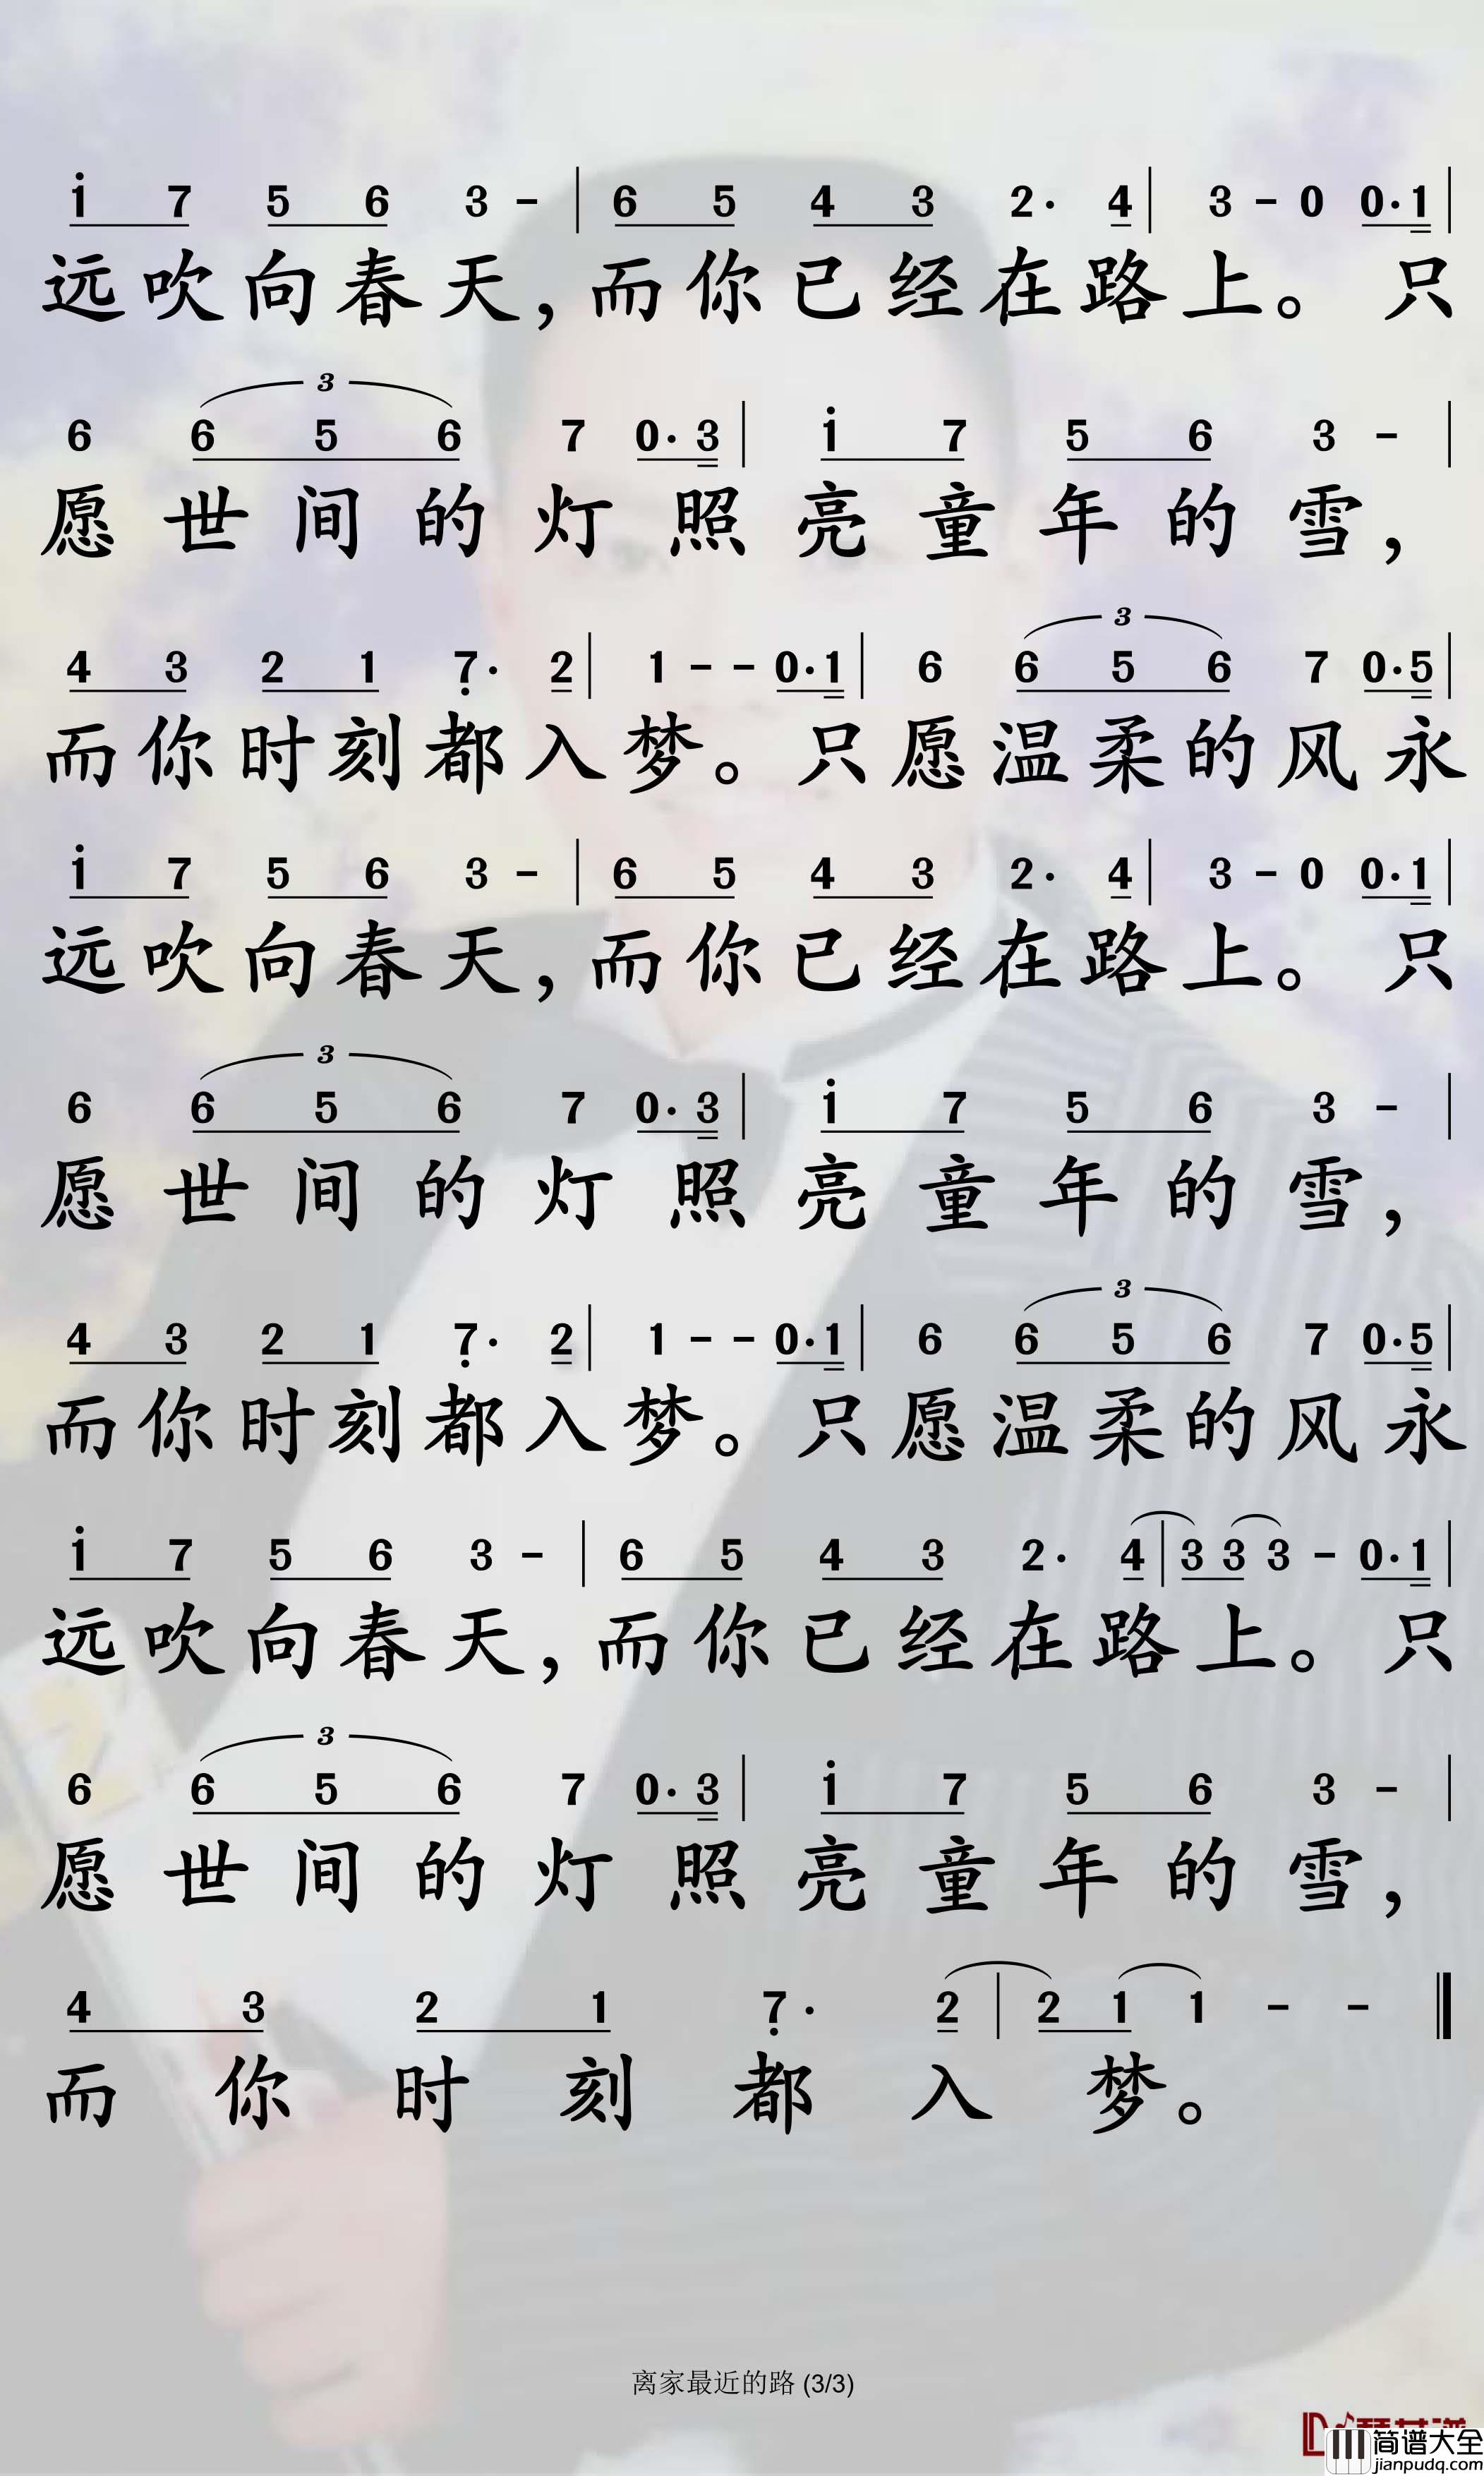 i 7 5 6 3 - | 6 5 4 3 2· 4 | 3 - 0 0· 1 |
远吹向春天，而你已经在路上。 只
3
6 6 5 6 7 0· 3 | i 7 5 6 3 - |
愿世间的灯照亮童年的雪，
3
4 3 2 1 7· 2 | 1 - - 0· 1 | 6 6 5 6 7 0· 5 |
而你时刻都入梦。只愿温柔的风永
i 7 5 6 3 - | 6 5 4 3 2· 4 | 3 - 0 0· 1 |
远吹向春天，而你已经在路上。 只
3
6 6 5 6 7 0· 3 | i 7 5 6 3 - |
愿世间的灯照亮童年的雪，
3
4 3 2 1 7· 2 | 1 - - 0· 1 | 6 6 5 6 7 0· 5 |
而你时刻都入梦。只愿温柔的风永
i 7 5 6 3 - | 6 5 4 3 2· 4 | 3 3 3 - 0· 1 |
远吹向春天，而你已经在路上。 只
3
6 6 5 6 7 0· 3 | i 7 5 6 3 - |
愿世间的灯照亮童年的雪，
4 3 2 1 7· 2 | 2 1 1 - - ‖
而你时刻都入梦。
离家最近的路 (3/3)
简谱大全
jianpudq.com